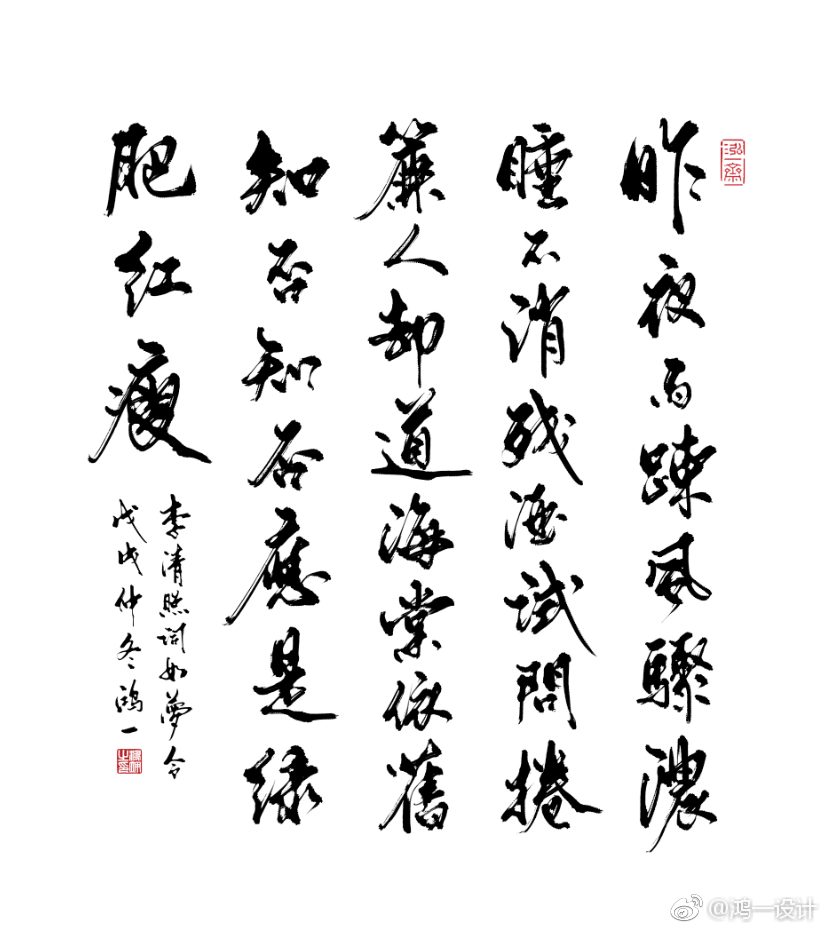 昨夜雨踈風驟濃
睡不消残酒試問捲
簾人却道海棠依舊
知否知否應是绿
肥红瘦
李清照词如夢令
戊戌仲冬鴻一
泓一斋
@鸿一设计